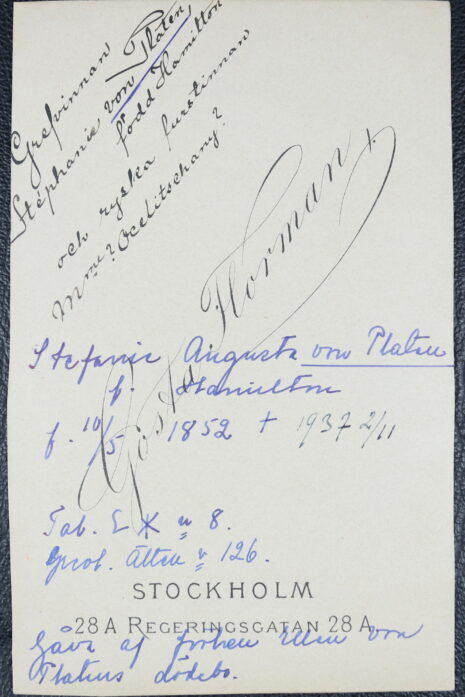 Grefvinnan
Stéphanie von Platen,
född Hamilton
och ryska furstinnan
Gösta Florman
Stefanie Augusta von Platen
f. Hamilton
f. 10/5 1852 + 1937 2/11
Tab. n 8.
ätten n 126.
STOCKHOLM
28A REGERINGSGATAN 28A
Gåva af fröken Ellen von
Platens dödsbo.